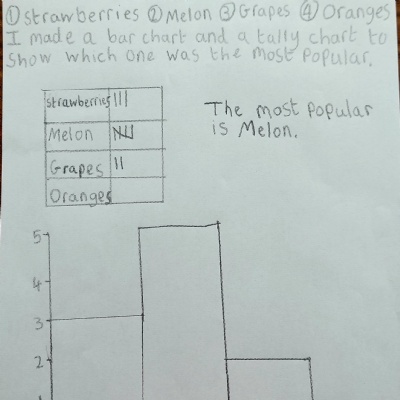 ① Strawberries ② Melon ③ Grapes ④ Oranges
I made a bar chart and a tally chart to
show which one was the most popular.
Strawberries
The most popular
is Melon.
Melon
Grapes
Oranges
5
4
3
2